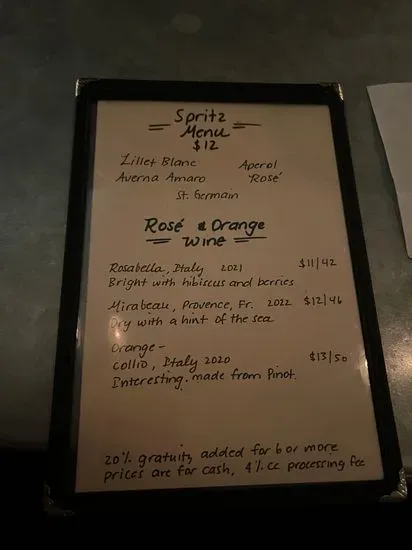 Spritz
Menu
$12
Lillet Blanc Aperol
Averna Amaro Rosé
St. Germain
Rosé & Orange
Wine
Rosabella, Italy 2021 $11/42
Bright with hibiscus and berries
Mirabeau, Provence, Fr. 2022 $12/46
Dry with a hint of the sea
Orange -
Collio, Italy 2020 $13/50
Interesting. made from Pinot.
20% gratuity added for 6 or more
prices are for cash, 4% cc processing fee